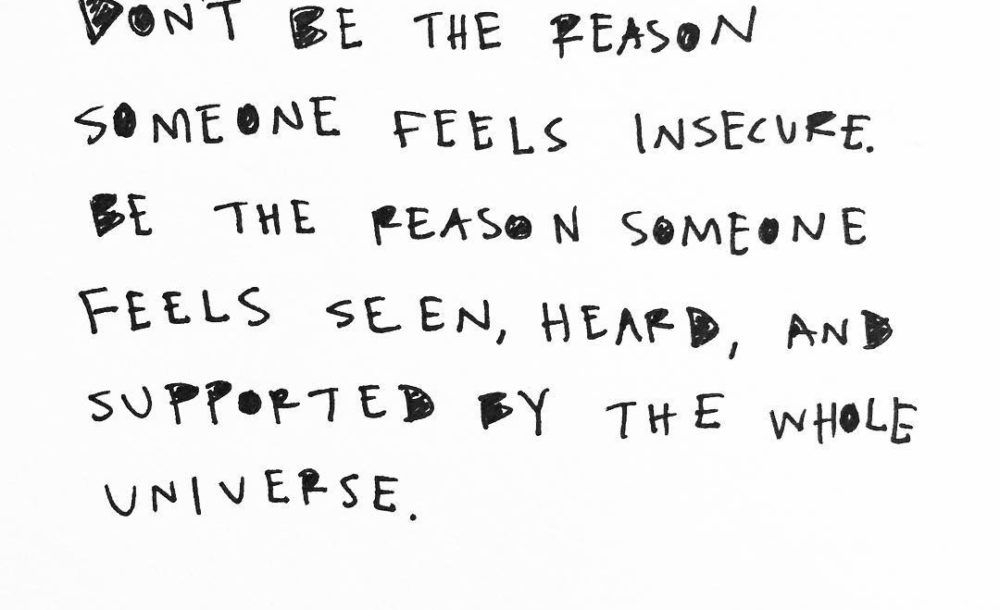 DONT BE THE REASON
SOMEONE FEELS INSECURE.
BE THE REASON SOMEONE
FEELS SEEN, HEARD, AND
SUPPORTED BY THE WHOLE
UNIVERSE.